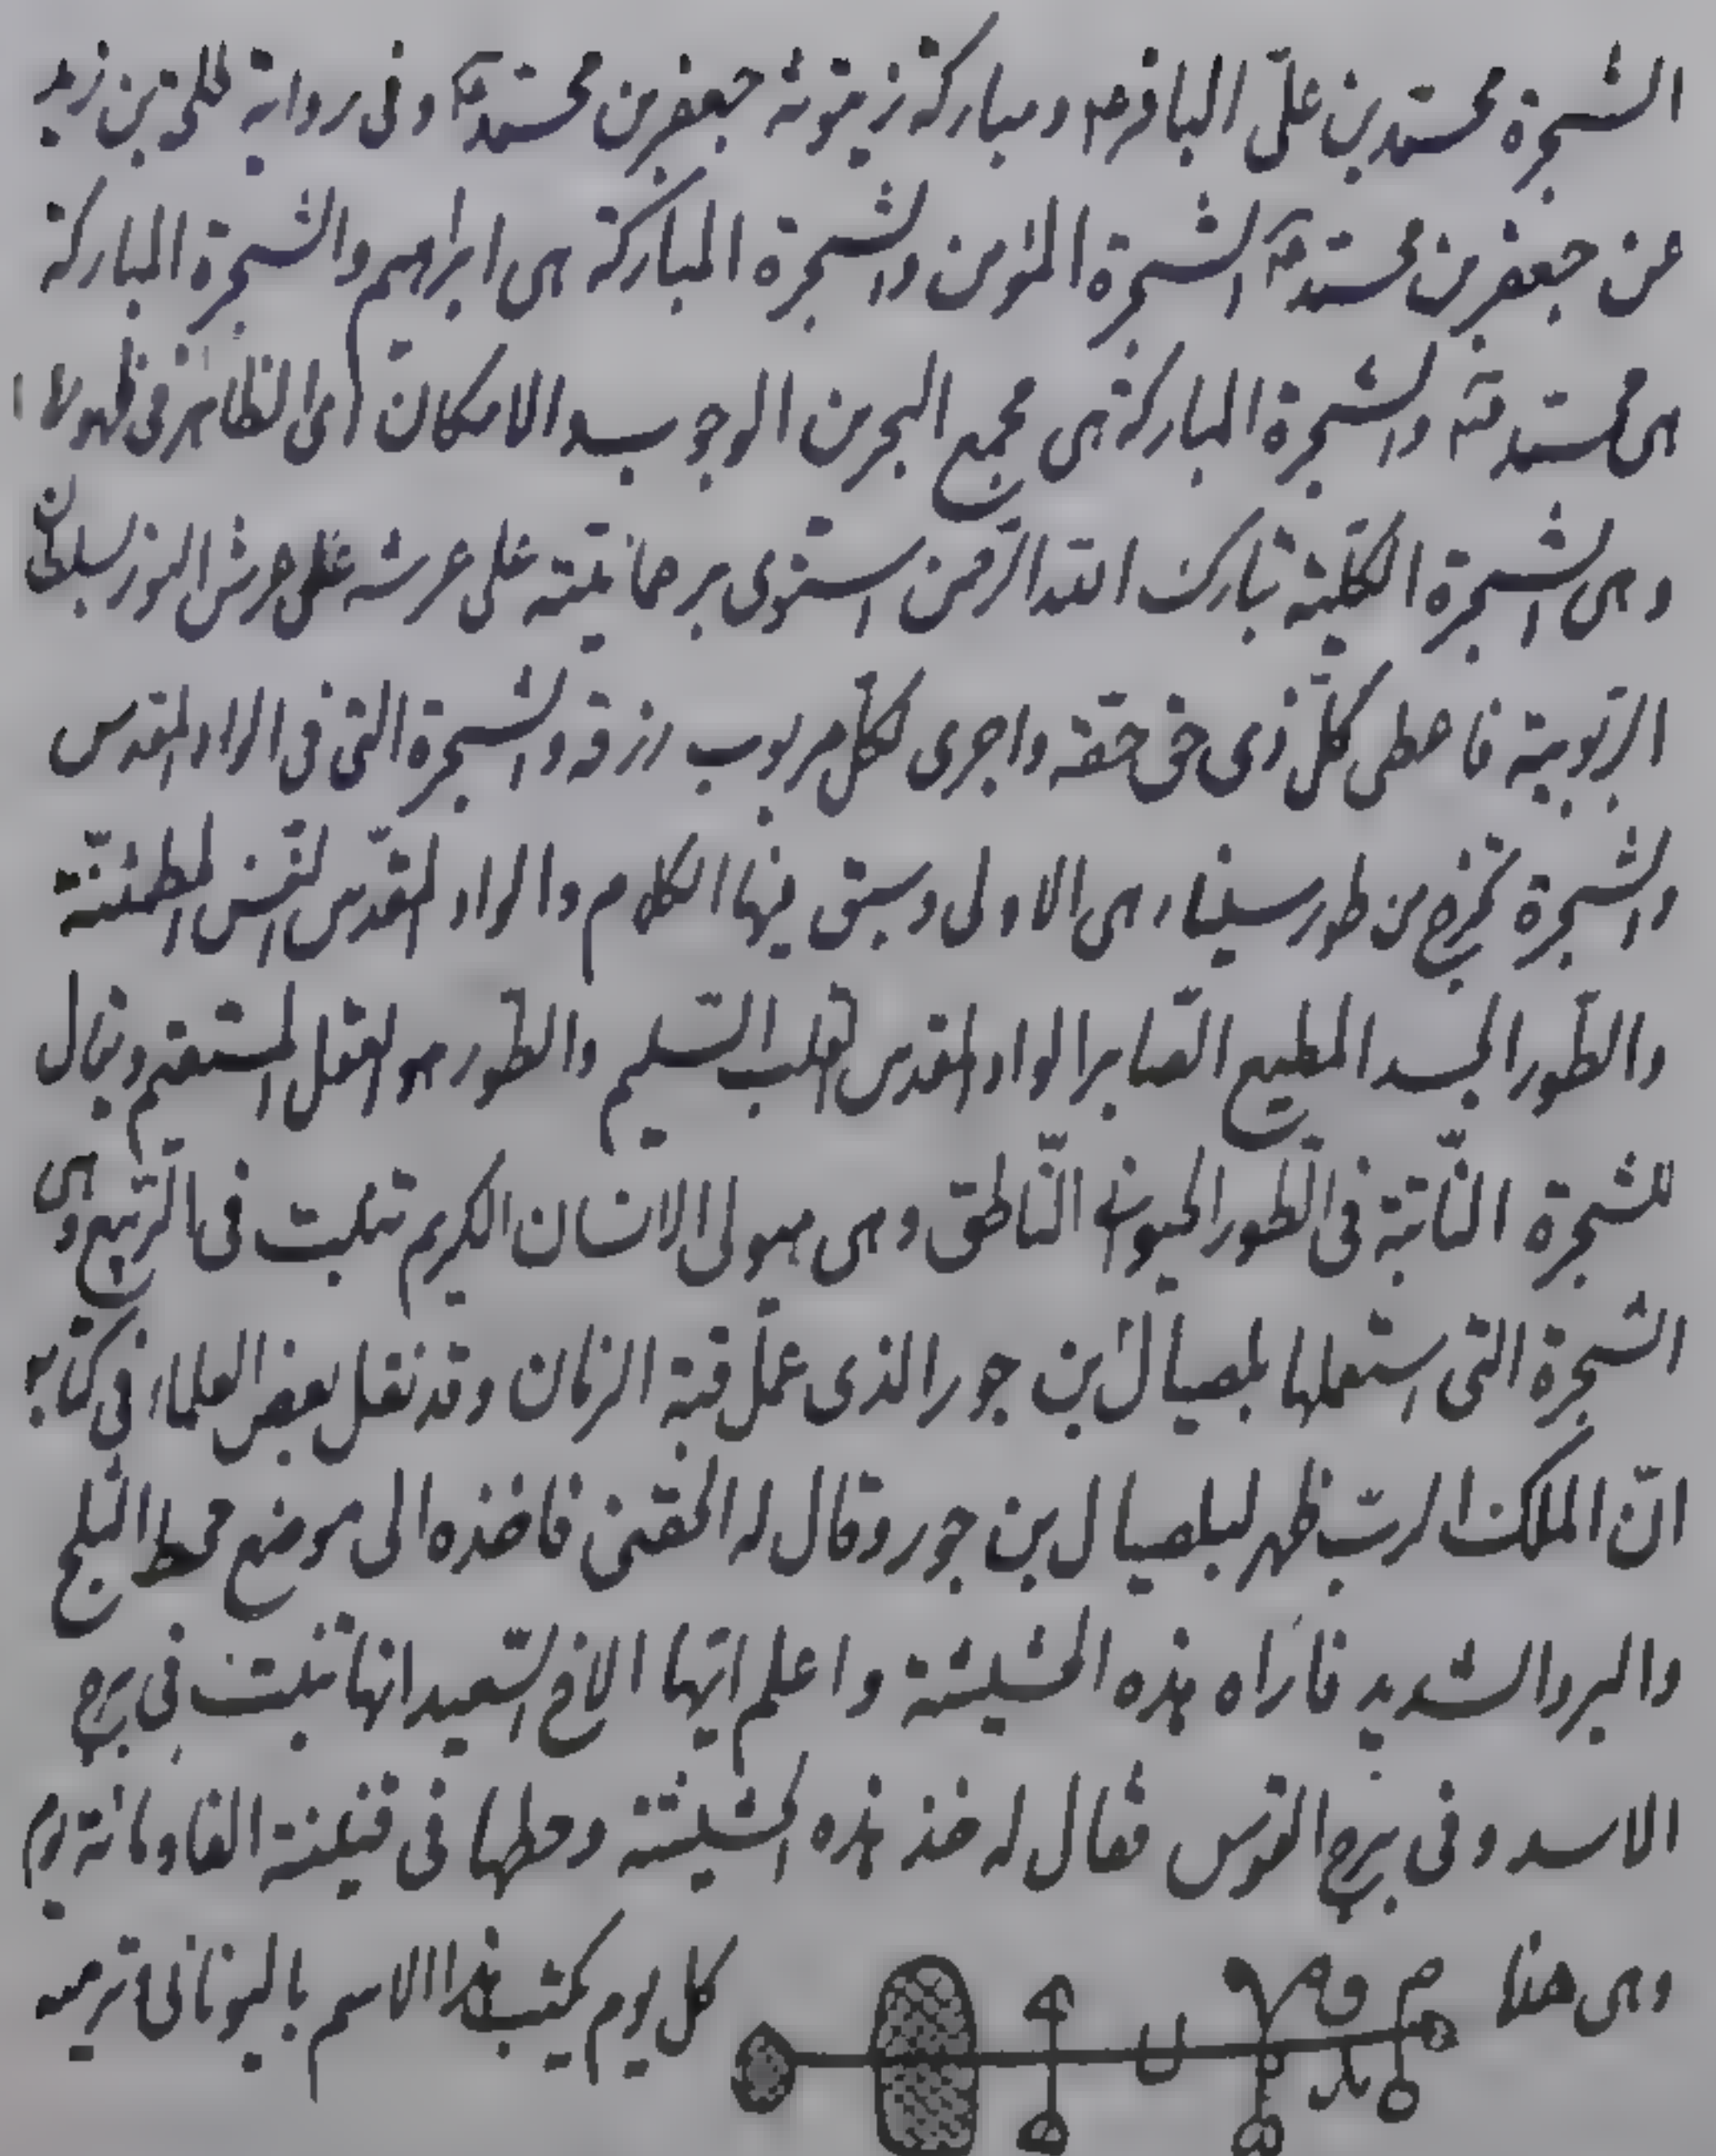 الشجرة محمّد بن علىّ الباقرع م ومباركة زيتونة جعفر بن محمّد ع وفى رواية طلحة بن زيد
عن جعفر بن محمّد ع الشجرة المؤمن والشجرة المباركة هى ابراهيم والشجرة المباركة
هى محمّد ص والشجرة المباركة هى مجمع البحرين الوجوب والامكان اى الظاهر فى ظهور
وهى الشجرة الكليّة تبارك الله الرّحمن استوى برحمانيّته على عرشه على عرش النور سلطان
الرّبوبية فاعطى كلّ ذى حق حقّه واجرى لكلّ مربوب رزقه والشجرة التى فى الواد المقدس
والشجرة تخرج من طور سيناء هى الاولى وسبق فيها الكلام والواد المقدّس النفس المطمئنّة
والطّور الجسد المطيع الصّابر الواد المقدس القلب السّليم والطّور هو العقل المستقيم ويقال
للشجرة النّابتة فى الطور الحيوان النّاطق وهى هيولى الانسان الكريم تنبت فى الرّبيع وهى
الشجرة التى استعملها بلصيال بن جور الذى عمل قبة الزمان وقد نقل بعض العلماء فى كتابه
انّ الملك الربّ ظهر لبلصيال بن جور وقال له الحقنى فاخذه الى موضع محط الثلج
والبرد الشديد فاراه هذه الحشيشة واعلم ايّها الاخ السّعيد انها تنبت فى برج
الاسد وفى برج القوس فقال له خذ هذه الحشيشة وحطها فى قنينة الفا ومائة يوم
وهى هذا كل يوم يكتب هذا الاسم باليونانى وترميه